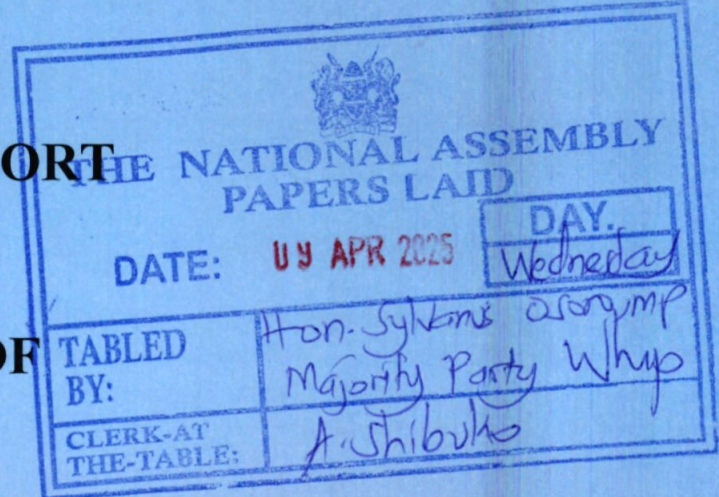 ORT
THE NATIONAL ASSEMBLY
PAPERS LAID
DATE: 09 APR 2025
DAY.
Wednesday
OF
TABLED BY:
Hon. Sylvanus Osoro, MP
Majority Party Whip
CLERK-AT THE-TABLE:
A. Shibuko